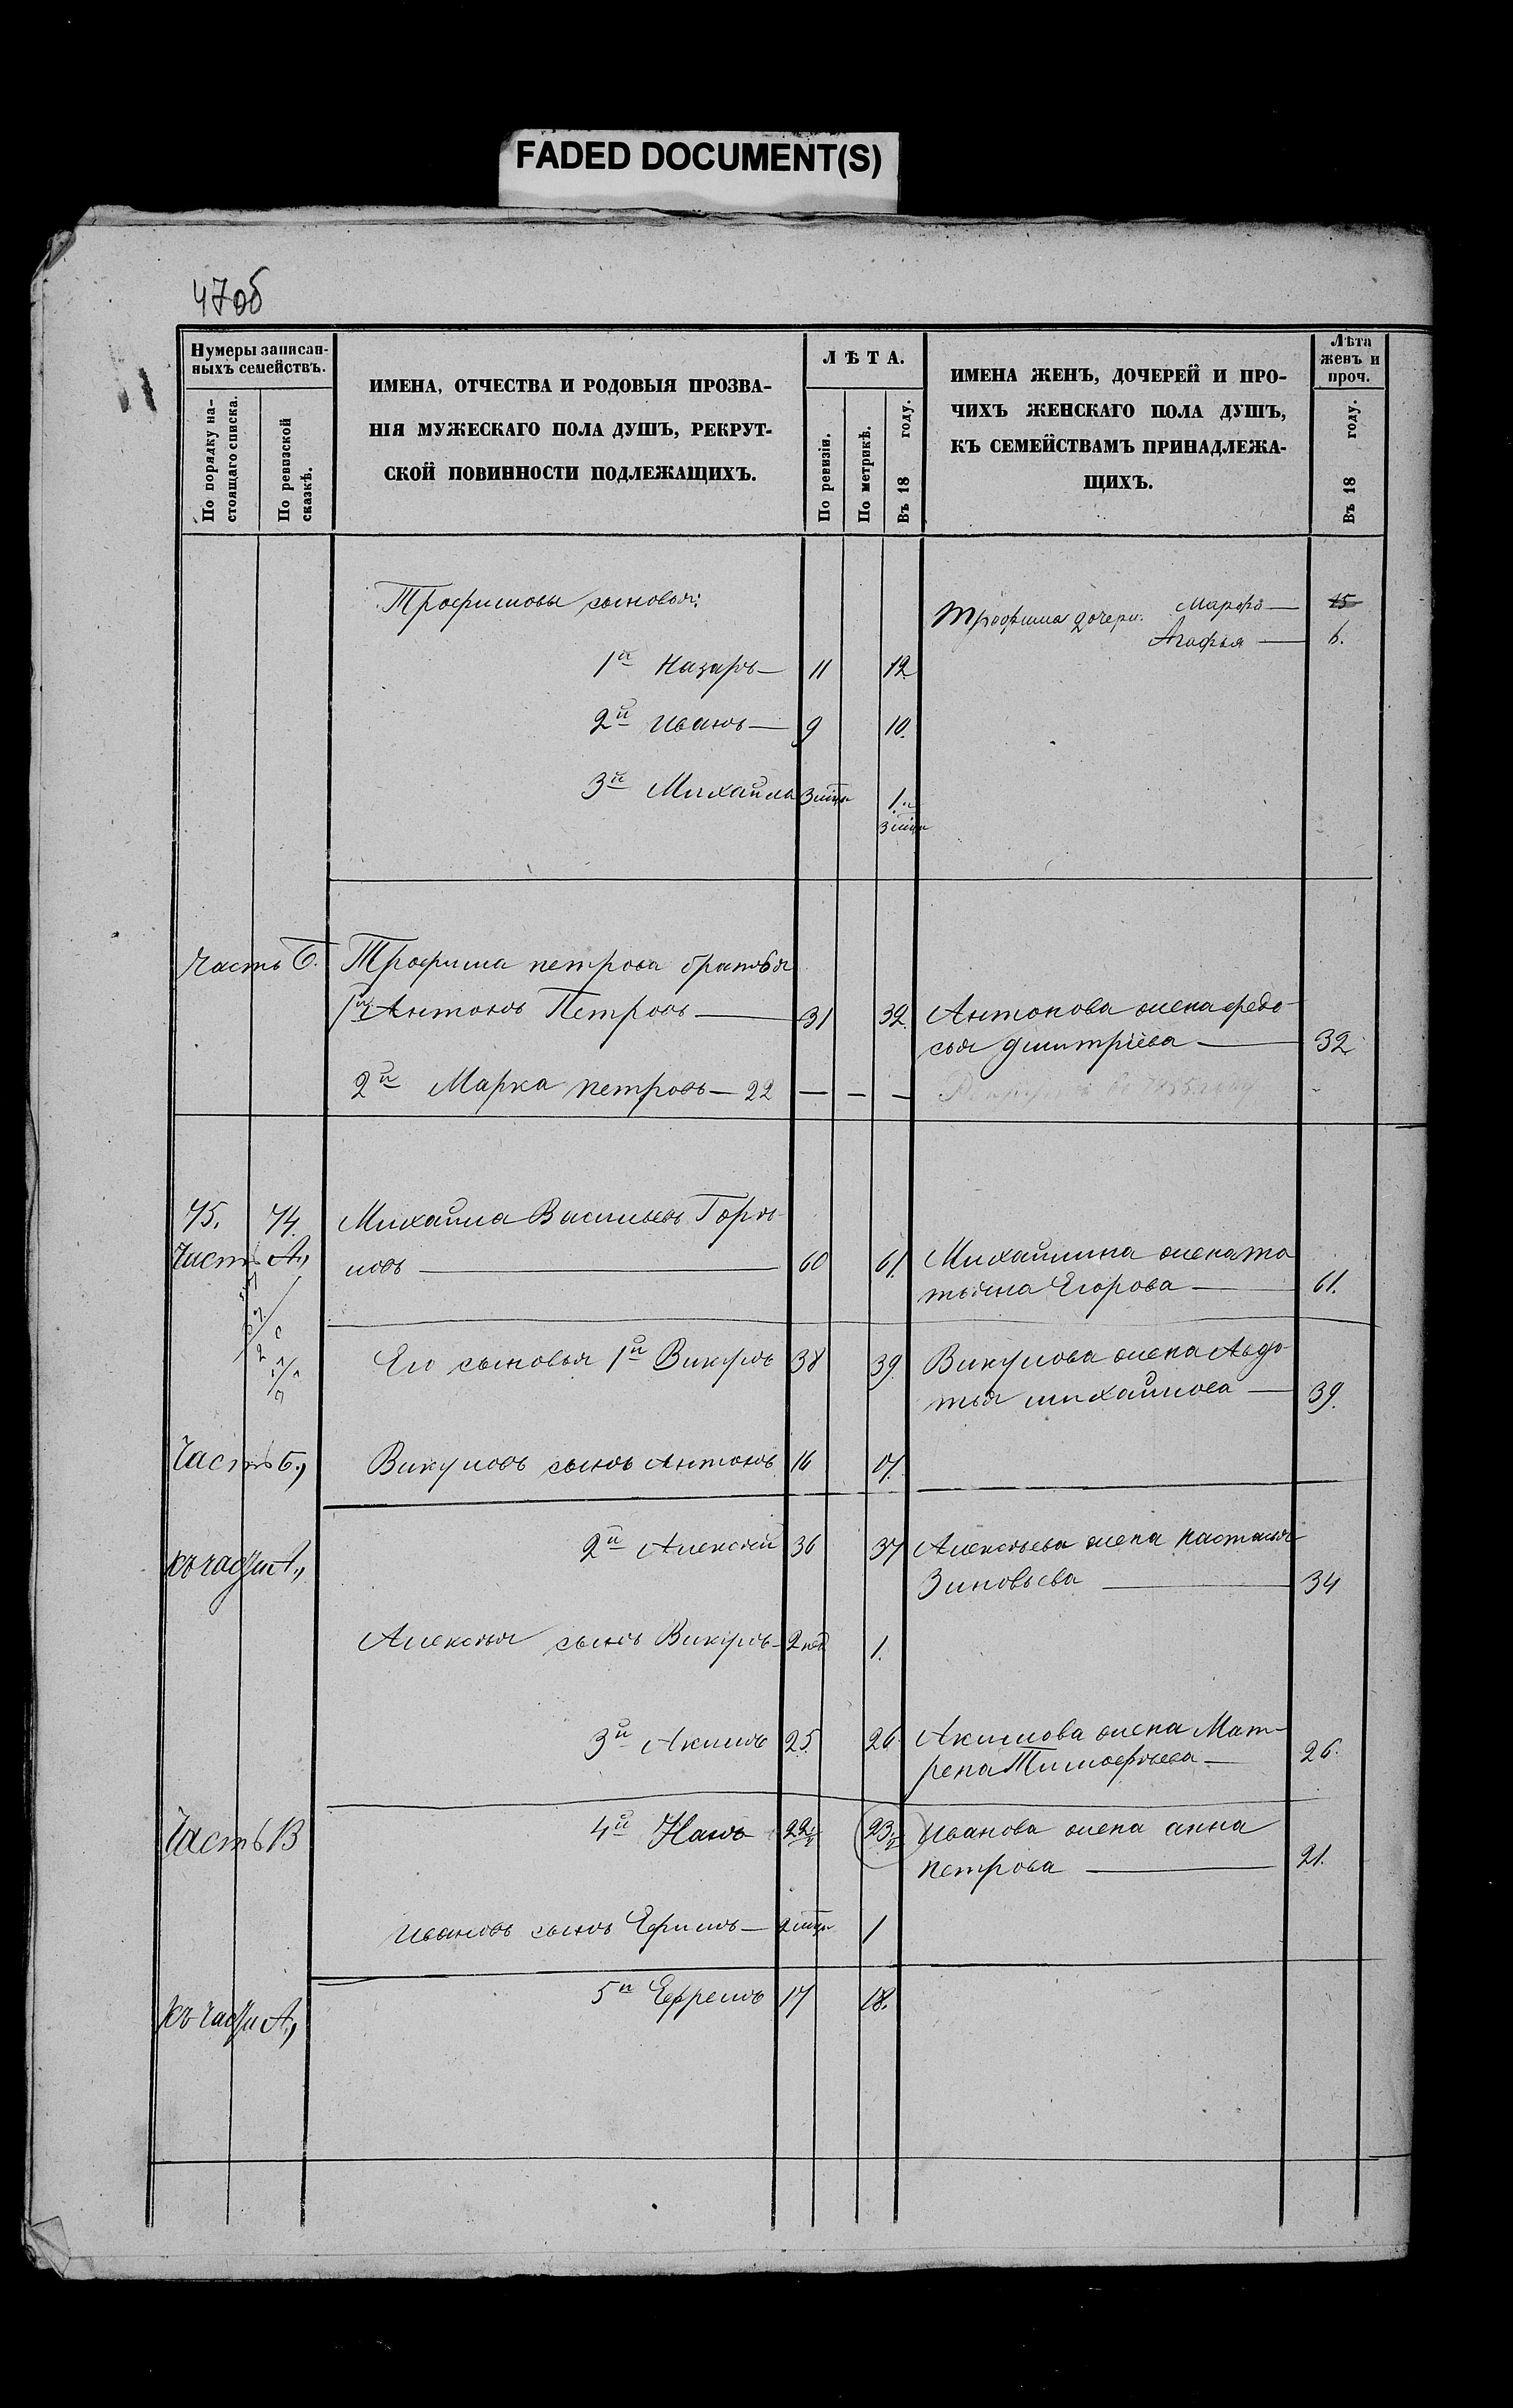 FADED DOCUMENT(S)
47об
Нумеры записан-
ныхъ семействъ.
По порядку на-
стоящаго списка.
По ревизской
сказкѣ.
ИМЕНА, ОТЧЕСТВА И РОДОВЫЯ ПРОЗВА-
НІЯ МУЖЕСКАГО ПОЛА ДУШЪ, РЕКРУТ-
СКОЙ ПОВИННОСТИ ПОДЛЕЖАЩИХЪ.
ЛѢТА.
По ревизіи.
По метрикѣ.
Въ 18 году.
ИМЕНА ЖЕНЪ, ДОЧЕРЕЙ И ПРО-
ЧИХЪ ЖЕНСКАГО ПОЛА ДУШЪ,
КЪ СЕМЕЙСТВАМЪ ПРИНАДЛЕЖА-
ЩИХЪ.
Лѣта
женъ и
проч.
Въ 18 году.
Трофимовы сыновья:
Трофима дочери: Марфа — 15
Агафья — 6.
1й Назаръ — 11 12
2й Иванъ — 9 10.
3й Михайла 3 1.
3
Часть Б. Трофима петрова братья
1й Антонъ Петровъ — 31 32. Антонова жена федо-
сья дмитріева — 32
2й Марка петровъ — 22 — — —
75. 74. Михайла Васильевъ Горю-
Часть А., новъ — 60 61. Михайлина жена та
тьяна Егорова — 61.
Его сыновья 1й Викулъ 38 39. Викулова жена Авдо-
тья михайлова — 39.
Часть Б., Викуловъ сынъ Антонъ 16 17.
къ части А., 2й Алексѣй 36 37 Алексѣева жена настасья
Зиновьева — 34
Алексѣя сынъ Викулъ — 2 1.
3й Акимъ 25 26. Акимова жена Мат-
рена Тимофѣева — 26.
Часть В 4й Иванъ 22 23 иванова жена анна
петрова — 21.
ивановъ сынъ Ефимъ — 2 1
къ части А., 5й Ефремъ 17 18.